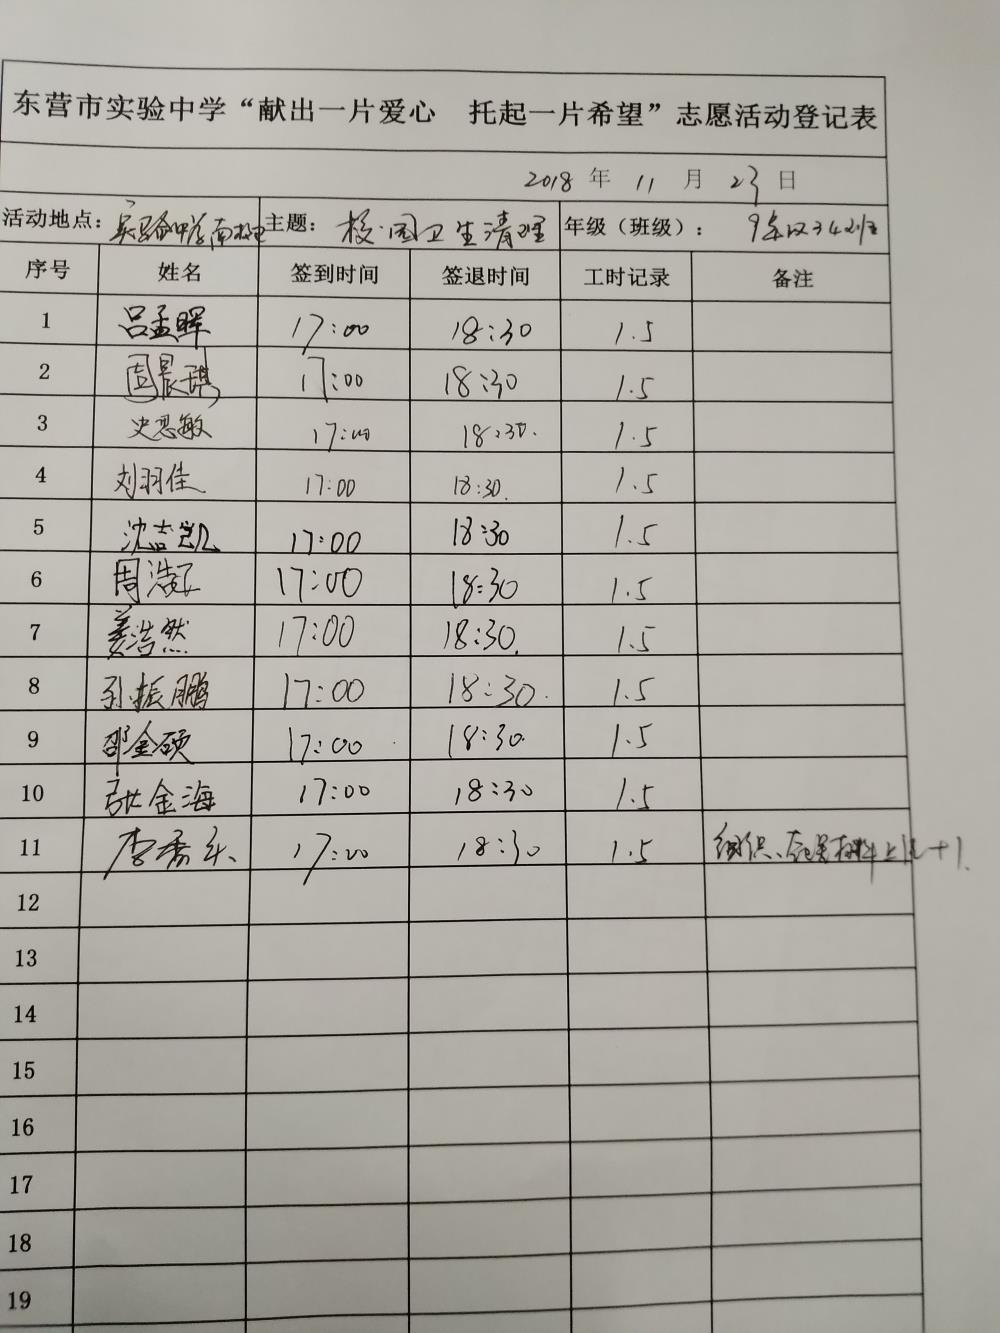 东营市实验中学“献出一片爱心 托起一片希望”志愿活动登记表
2018 年 11 月 23 日
活动地点： 实验中学南校区 主题： 校园卫生清理 年级（班级）： 9年级34班
序号 姓名 签到时间 签退时间 工时记录 备注
1 吕孟晖 17:00 18:30 1.5
2 周晨琪 17:00 18:30 1.5
3 史思敏 17:00 18:30. 1.5
4 刘羽佳 17:00 18:30. 1.5
5 沈志凯 17:00 18:30 1.5
6 周浩 17:00 18:30 1.5
7 姜浩然 17:00 18:30. 1.5
8 孙振鹏 17:00 18:30. 1.5
9 邵金硕 17:00 18:30. 1.5
10 张金海 17:00 18:30 1.5
11 李 17:00 18:30 1.5 组织、材料上传+1.
12
13
14
15
16
17
18
19